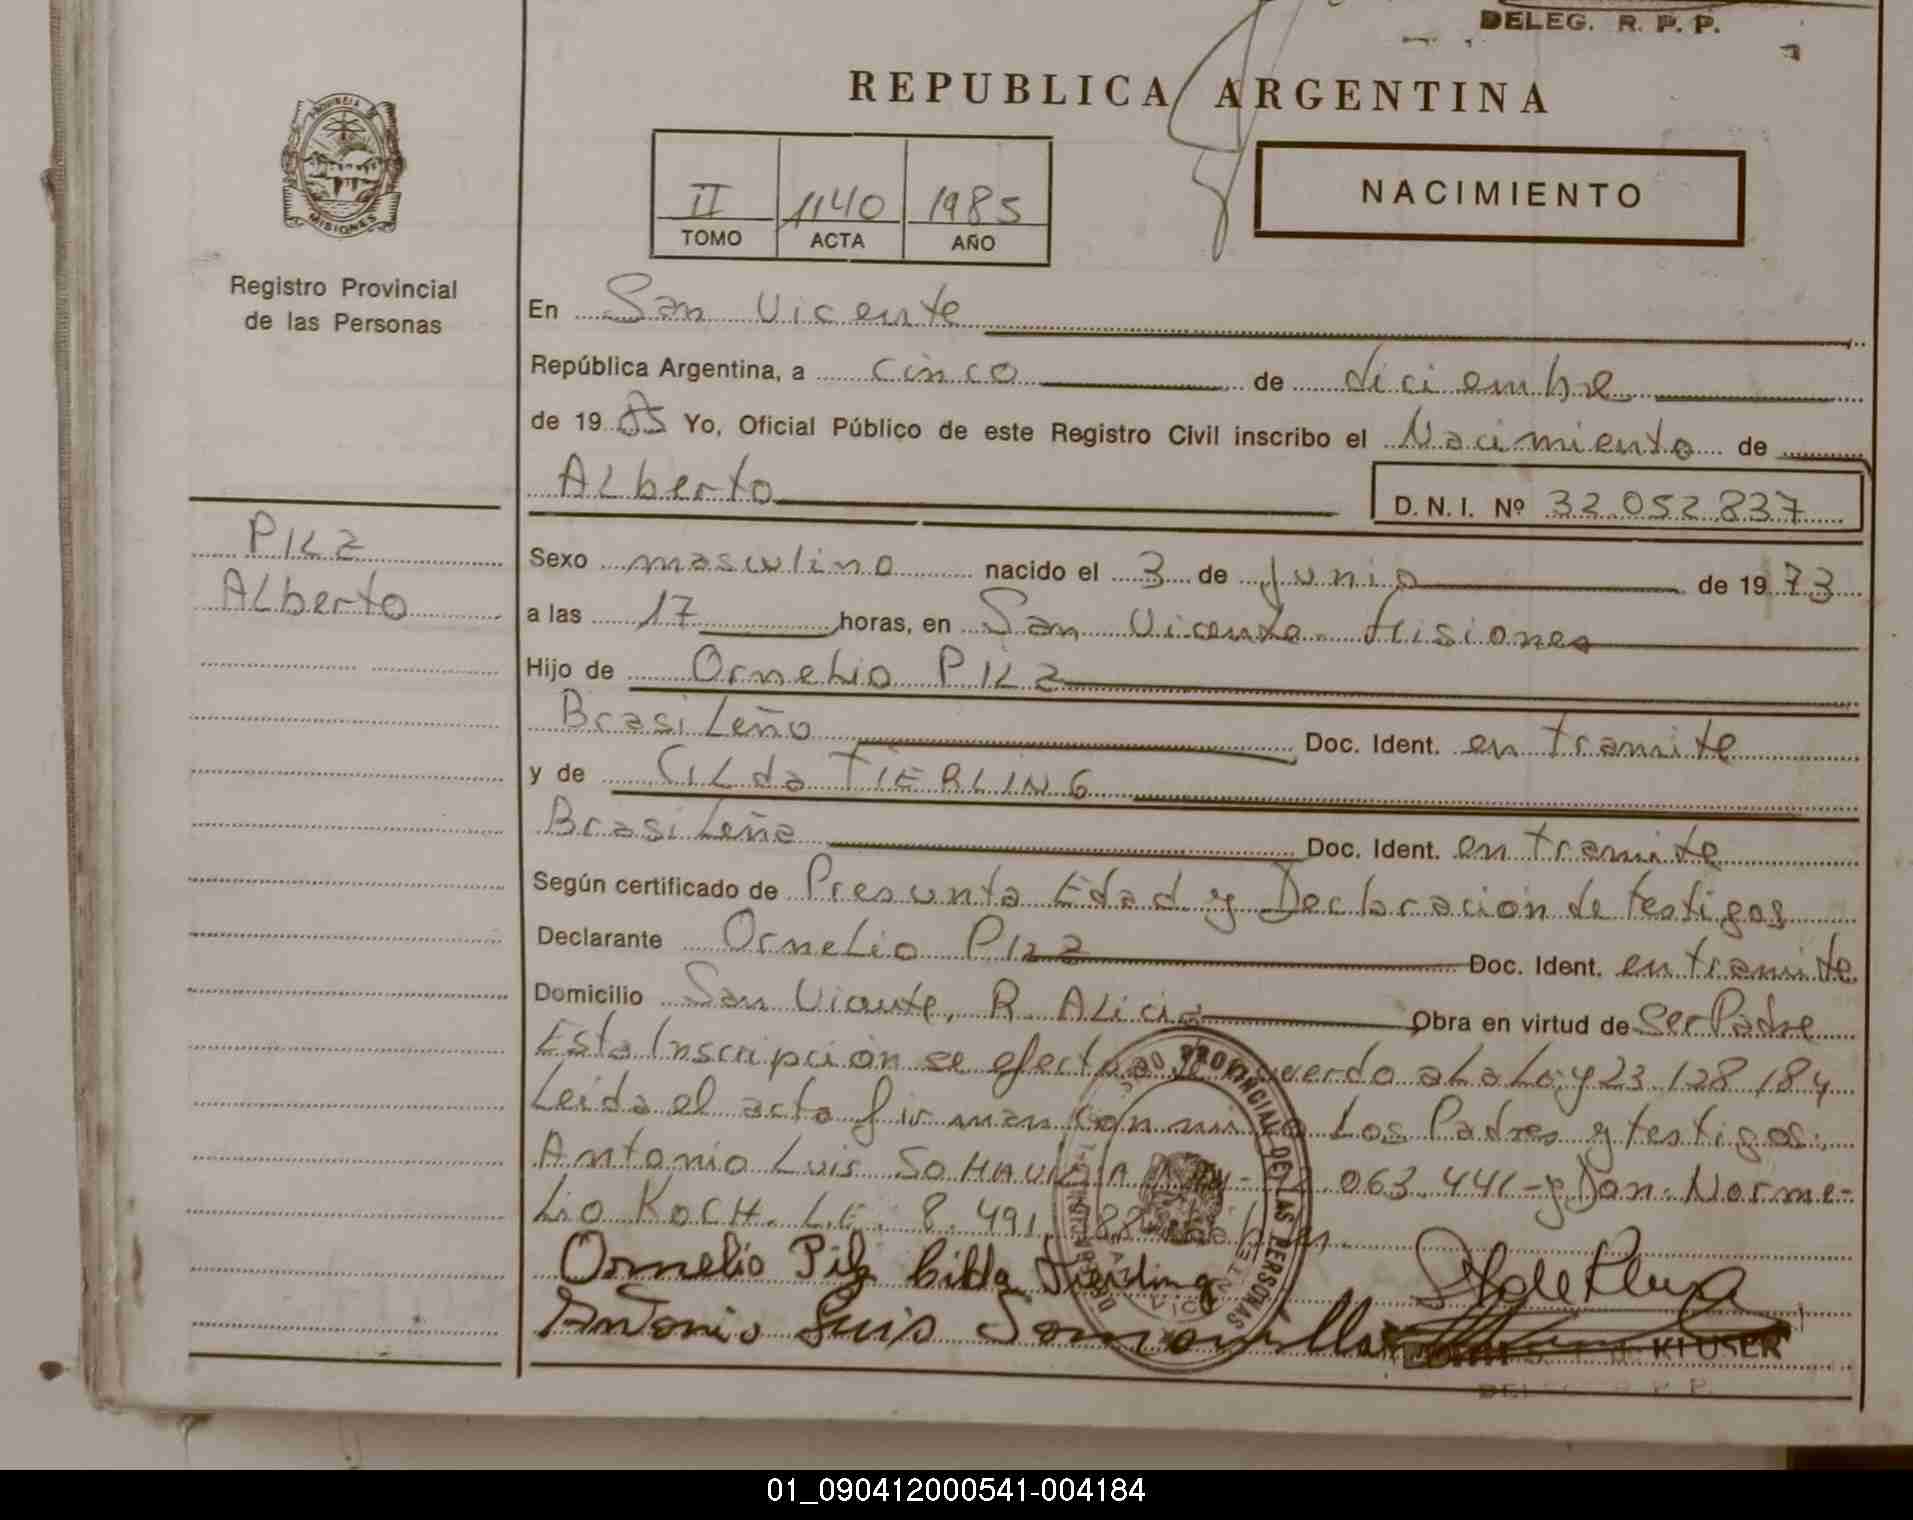 DELEG. R. P. P.
REPUBLICA ARGENTINA
PROVINCIA DE
MISIONES
Registro Provincial
de las Personas
II 1140 1985
TOMO ACTA AÑO
NACIMIENTO
En San Vicente
República Argentina, a cinco de diciembre
de 19 85 Yo, Oficial Público de este Registro Civil inscribo el Nacimiento de
Alberto
D. N. I. Nº 32.052.837
PILZ
Alberto
Sexo masculino nacido el 3 de Junio de 19 73
a las 17 horas, en San Vicente Misiones
Hijo de Ornelio PILZ
Brasileño Doc. Ident. en tramite
y de CILda TIERLING
Brasileña Doc. Ident. en tramite
Según certificado de Presunta Edad y Declaración de testigos
Declarante Ornelio PILZ Doc. Ident. en tramite
Domicilio San Vicente, R. Alicia Obra en virtud de Ser Padre
Esta Inscripción se efectua de acuerdo a La Ley 23.128/84
Leida el acta firman conmigo Los Padres y testigos:
Antonio Luis 063.441-y Don Norme-
Lio KOCH. L.E. 8.491.
Ornelio Pilz Cilda Tierling
Antonio Luis
REGISTRO PROVINCIAL DE LAS PERSONAS
KLUSER
DELEG. R. P. P.
01_090412000541-004184